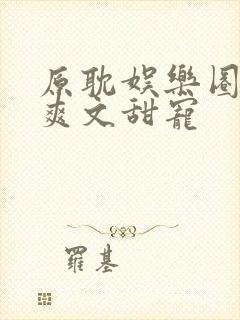 原耽娱樂圈
爽文甜寵
羅基